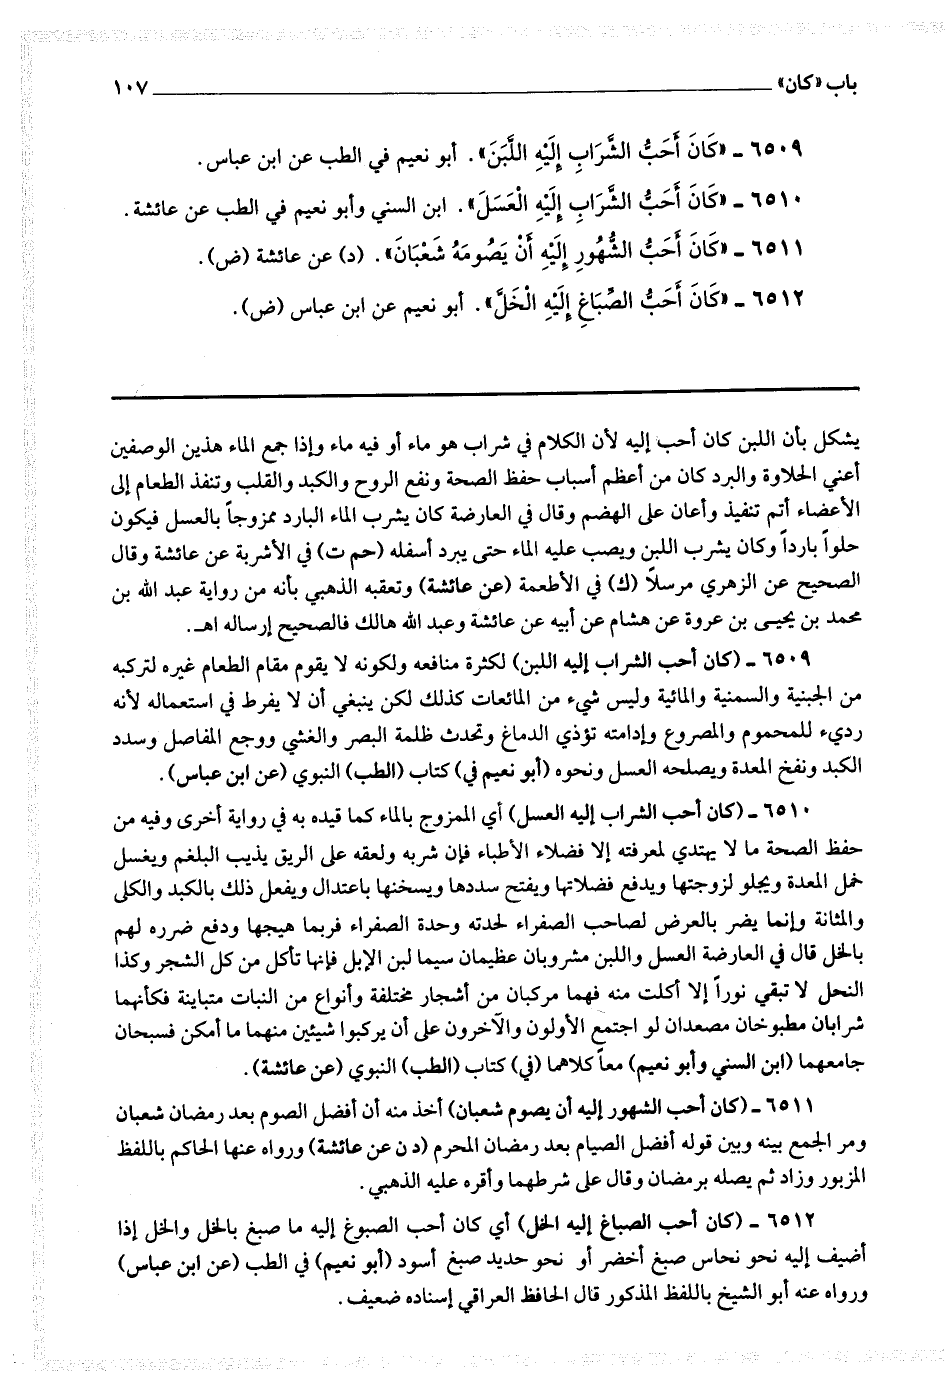 باب «كان» ١٠٧
٦٥٠٩ - «كَانَ أَحَبُّ الشَّرَابِ إِلَيْهِ اللَّبَنَ». أبو نعيم في الطب عن ابن عباس.
٦٥١٠ - «كَانَ أَحَبُّ الشَّرَابِ إِلَيْهِ الْعَسَلَ». ابن السني وأبو نعيم في الطب عن عائشة.
٦٥١١ - «كَانَ أَحَبُّ الشُّهُورِ إِلَيْهِ أَنْ يَصُومَهُ شَعْبَانَ». (د) عن عائشة (ض).
٦٥١٢ - «كَانَ أَحَبُّ الصِّبَاغِ إِلَيْهِ الْخَلَّ». أبو نعيم عن ابن عباس (ض).
يشكل بأن اللبن كان أحب إليه لأن الكلام في شراب هو ماء أو فيه ماء وإذا جمع الماء هذين الوصفين
أعني الحلاوة والبرد كان من أعظم أسباب حفظ الصحة ونفع الروح والكبد والقلب وتنفذ الطعام إلى
الأعضاء أتم تنفيذ وأعان على الهضم وقال في العارضة كان يشرب الماء البارد ممزوجاً بالعسل فيكون
حلواً بارداً وكان يشرب اللبن ويصب عليه الماء حتى يبرد أسفله (حم ت) في الأشربة عن عائشة وقال
الصحيح عن الزهري مرسلاً (ك) في الأطعمة (عن عائشة) وتعقبه الذهبي بأنه من رواية عبد الله بن
محمد بن يحيـى بن عروة عن هشام عن أبيه عن عائشة وعبد الله هالك فالصحيح إرساله اهـ.
٦٥٠٩ - (كان أحب الشراب إليه اللبن) لكثرة منافعه ولكونه لا يقوم مقام الطعام غيره لتركبه
من الجبنية والسمنية والمائية وليس شيء من المائعات كذلك لكن ينبغي أن لا يفرط في استعماله لأنه
رديء للمحموم والمصروع وإدامته تؤذي الدماغ وتحدث ظلمة البصر والغشي ووجع المفاصل وسدد
الكبد ونفخ المعدة ويصلحه العسل ونحوه (أبو نعيم في) كتاب (الطب) النبوي (عن ابن عباس).
٦٥١٠ - (كان أحب الشراب إليه العسل) أي الممزوج بالماء كما قيده به في رواية أخرى وفيه من
حفظ الصحة ما لا يهتدي لمعرفته إلا فضلاء الأطباء فإن شربه ولعقه على الريق يذيب البلغم ويغسل
خمل المعدة ويجلو لزوجتها ويدفع فضلاتها ويفتح سددها ويسخنها باعتدال ويفعل ذلك بالكبد والكلى
والمثانة وإنما يضر بالعرض لصاحب الصفراء لحدته وحدة الصفراء فربما هيجها ودفع ضرره لهم
بالخل قال في العارضة العسل واللبن مشروبان عظيمان سيما لبن الإبل فإنها تأكل من كل الشجر وكذا
النحل لا تبقي نوراً إلا أكلت منه فهما مركبان من أشجار مختلفة وأنواع من النبات متباينة فكأنهما
شرابان مطبوخان مصعدان لو اجتمع الأولون والآخرون على أن يركبوا شيئين منهما ما أمكن فسبحان
جامعهما (ابن السني وأبو نعيم) معاً كلاهما (في) كتاب (الطب) النبوي (عن عائشة).
٦٥١١ - (كان أحب الشهور إليه أن يصوم شعبان) أخذ منه أن أفضل الصوم بعد رمضان شعبان
ومر الجمع بينه وبين قوله أفضل الصيام بعد رمضان المحرم (د ن عن عائشة) ورواه عنها الحاكم باللفظ
المزبور وزاد ثم يصله برمضان وقال على شرطهما وأقره عليه الذهبي.
٦٥١٢ - (كان أحب الصباغ إليه الخل) أي كان أحب الصبوغ إليه ما صبغ بالخل والخل إذا
أضيف إليه نحو نحاس صبغ أخضر أو نحو حديد صبغ أسود (أبو نعيم) في الطب (عن ابن عباس)
ورواه عنه أبو الشيخ باللفظ المذكور قال الحافظ العراقي إسناده ضعيف.